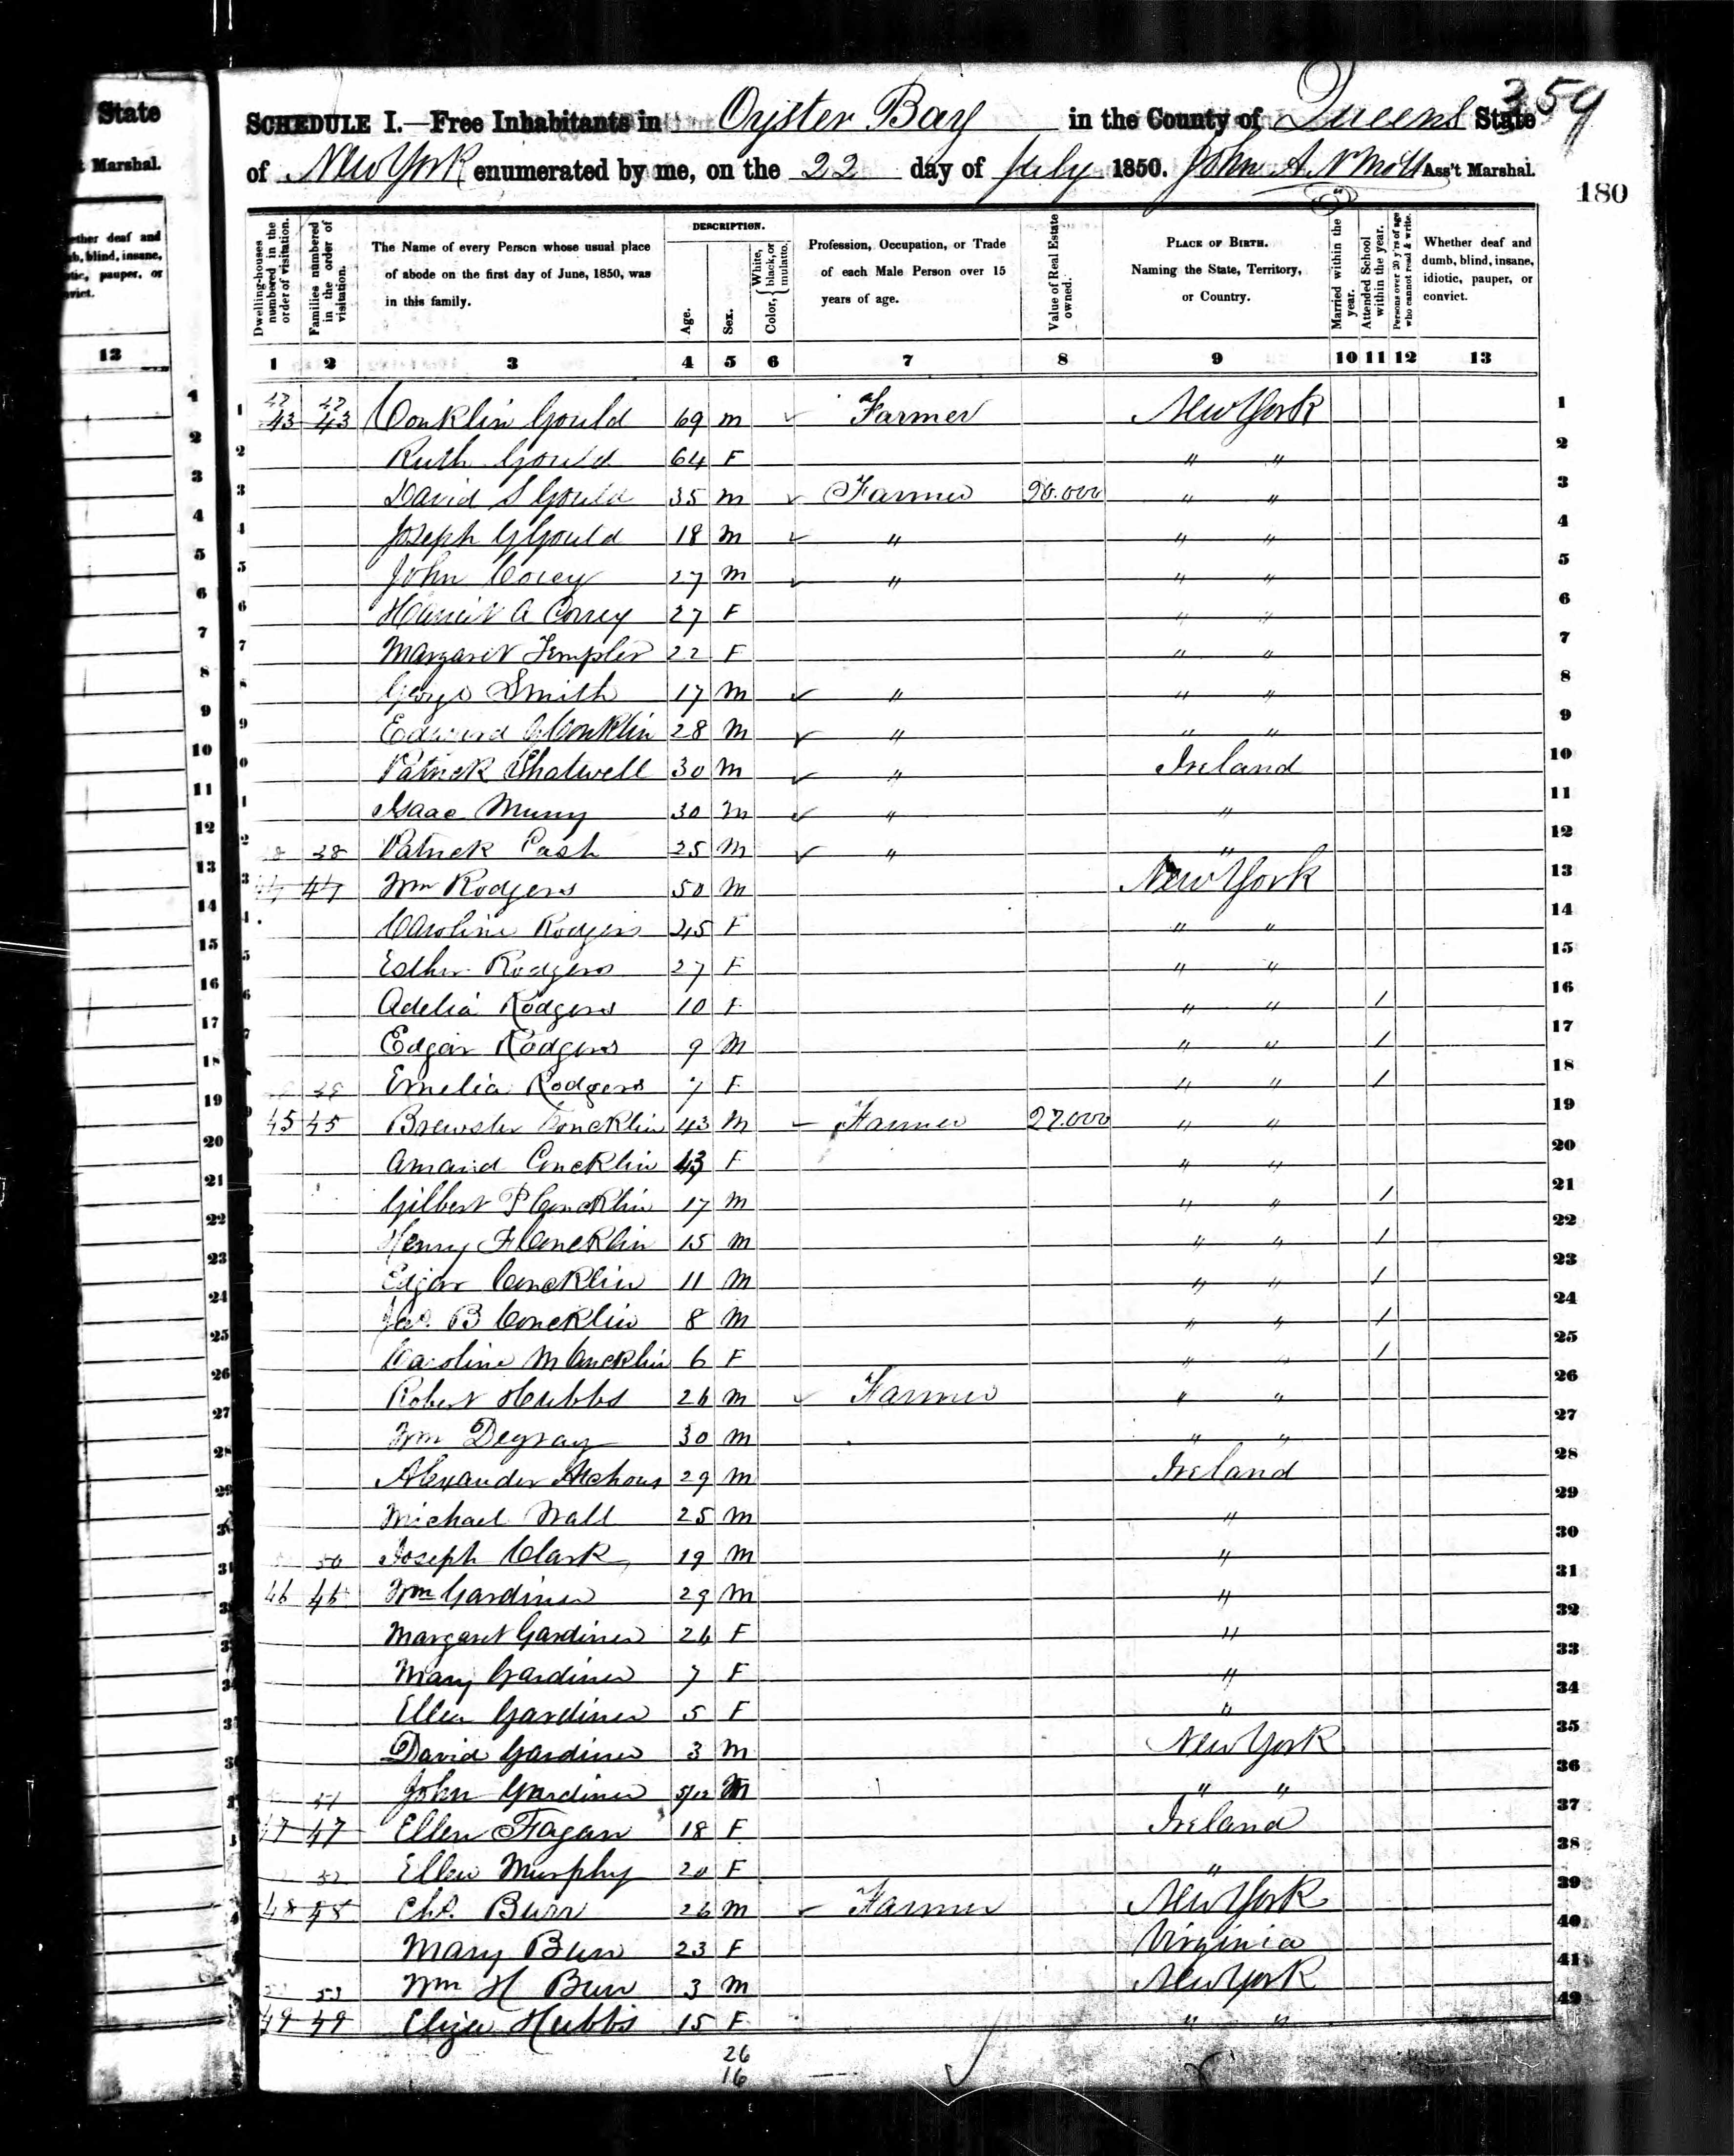 State
t Marshal.
ether deaf and
b, blind, insane,
otic, pauper, or
nvict.
13
359
SCHEDULE I.—Free Inhabitants in Oyster Bay in the County of Queens State
of New York enumerated by me, on the 22 day of July 1850. John A. Ass't Marshal.
180
Dwelling-houses numbered in the order of visitation.
Families numbered in the order of visitation.
The Name of every Person whose usual place of abode on the first day of June, 1850, was in this family.
DESCRIPTION.
Age.
Sex.
Color, White, black, or mulatto.
Profession, Occupation, or Trade of each Male Person over 15 years of age.
Value of Real Estate owned.
PLACE OF BIRTH. Naming the State, Territory, or Country.
Married within the year.
Attended School within the year.
Persons over 20 y'rs of age who cannot read & write.
Whether deaf and dumb, blind, insane, idiotic, pauper, or convict.
1 2 3 4 5 6 7 8 9 10 11 12 13
1 43 43 Conklin Gould 69 m Farmer New York 1
2 Ruth Gould 64 F " " 2
3 David S Gould 35 m Farmer " " 3
4 Joseph G Gould 18 m " " " 4
5 John Corey 27 m " " " 5
6 A Correy 27 F " " 6
7 Margaret Templer 22 F " " 7
8 George Smith 17 m " " " 8
9 Edward G Conklin 28 m " " " 9
10 Patrick Chatwell 30 m " Ireland 10
11 Isaac 30 m " " 11
12 38 Patrick Cash 25 m " " 12
13 44 44 Wm Rodgers 50 m New York 13
14 Caroline Rodgers 45 F " " 14
15 Esther Rodgers 27 F " " 15
16 Adelia Rodgers 10 F " " / 16
17 Edgar Rodgers 9 m " " / 17
18 Emelia Rodgers 7 F " " / 18
19 45 45 Brewster Concklin 43 m Farmer 27.000 " " 19
20 Amand Concklin 43 F " " 20
21 Gilbert P Concklin 17 m " " / 21
22 Henry F Concklin 15 m " " / 22
23 Edgar Concklin 11 m " " / 23
24 B Concklin 8 m " " / 24
25 Caroline M Concklin 6 F " " / 25
26 Robert Hubbs 26 m Farmer " " 26
27 Wm Degray 30 m " " 27
28 Alexander 29 m Ireland 28
29 Michael Wall 25 m " 29
30 50 Joseph Clark 19 m " 30
31 46 46 Wm Gardiner 29 m " 31
32 Margaret Gardiner 26 F " 32
33 Mary Gardiner 7 F " 33
34 Ellen Gardiner 5 F " 34
35 David Gardiner 3 m New York 35
36 51 John Gardiner 5/12 m " " 36
37 47 47 Ellen Fagan 18 F Ireland 37
38 52 Ellen Murphy 20 F " 38
39 48 48 Chs. Burr 26 m Farmer New York 39
40 Mary Burr 23 F Virginia 40
41 53 Wm H Burr 3 m New York 41
42 49 49 Eliza Hubbs 15 F " " 42
26
16